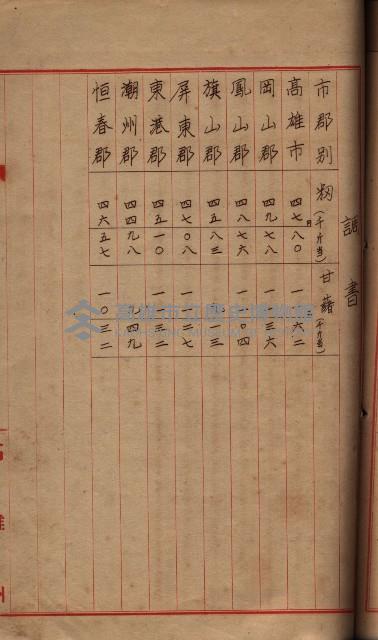 調書
市郡別 籾(千斤当) 甘藷(千斤当)
高雄市 四七八〇 一一六二
岡山郡 四九七八 一一三六
鳳山郡 四八七六
旗山郡 四五八三
屏東郡 四七〇八 一一二七
東港郡 四五一〇 一一三二
潮州郡 四四九八
恒春郡 四六五七 一〇三二
高雄市立歷史博物館